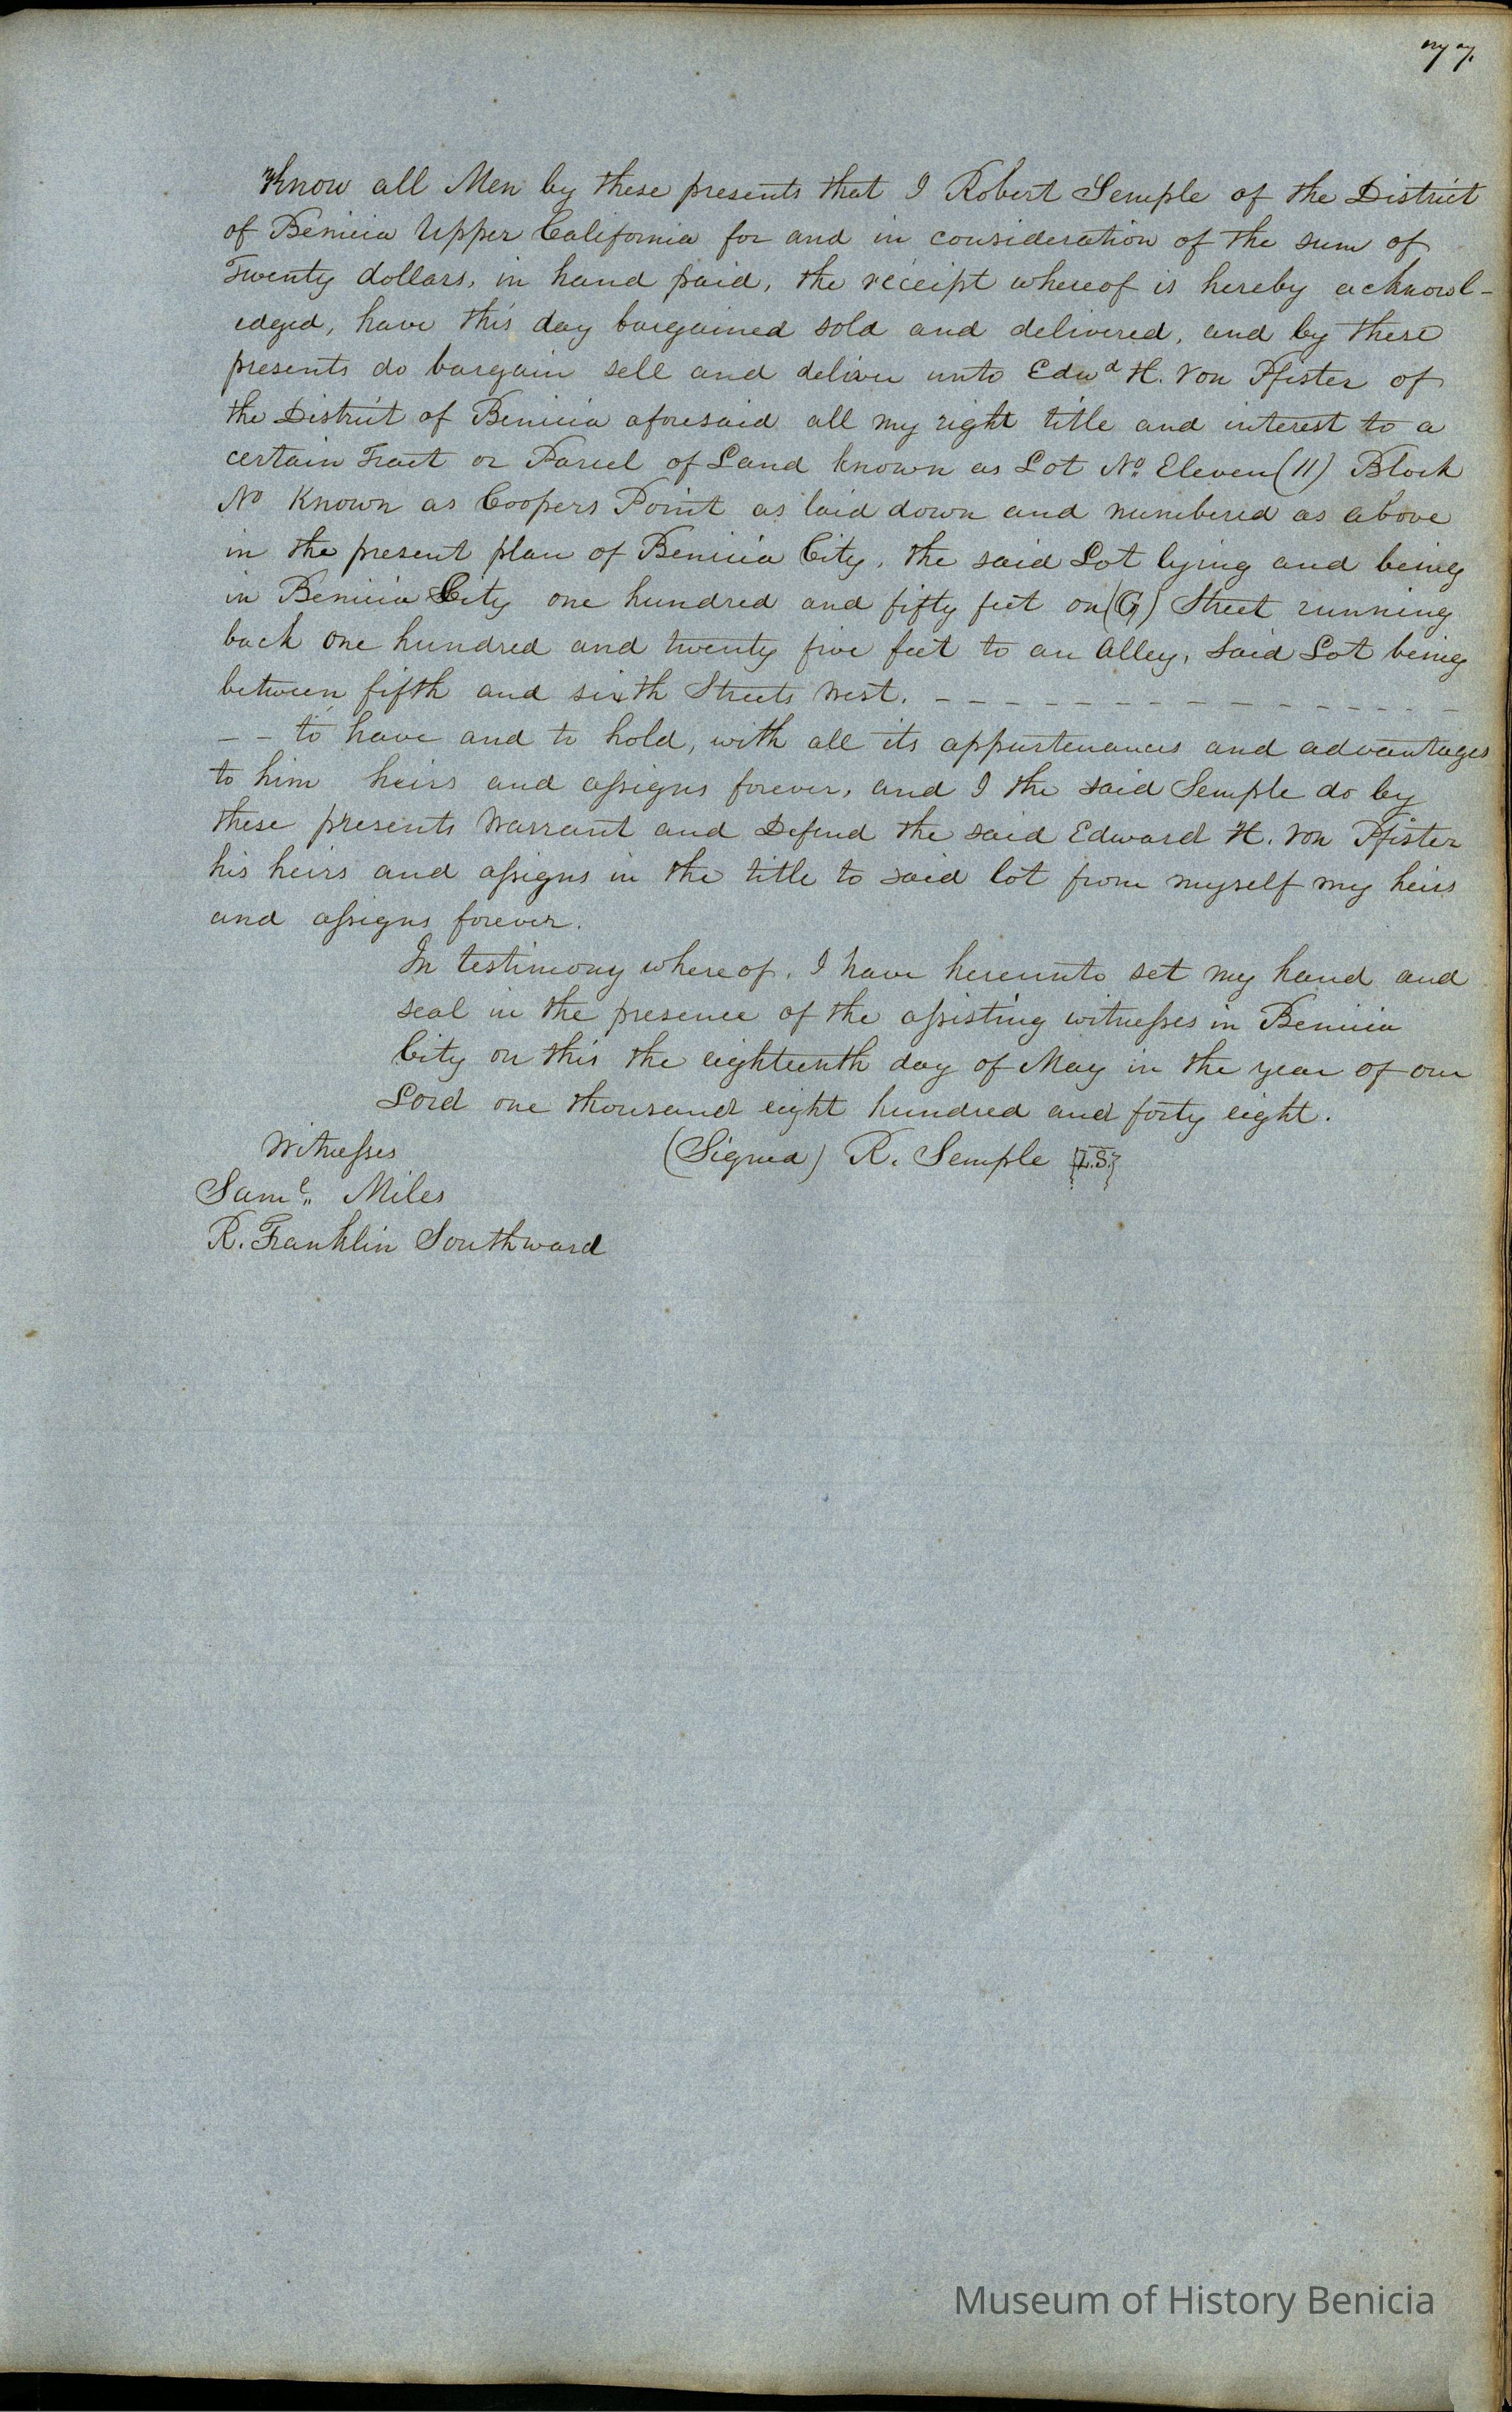 77.
Know all Men by these presents that I Robert Semple of the District
of Benicia Upper California for and in consideration of the sum of
Twenty dollars, in hand paid, the receipt whereof is hereby acknowl-
edged, have this day bargained sold and delivered, and by these
presents do bargain sell and deliver unto Edwd H. Von Pfister of
the District of Benicia aforesaid all my right title and interest to a
certain Tract or Parcel of Land known as Lot No. Eleven (11) Block
No Known as Coopers Point as laid down and numbered as above
in the present plan of Benicia City, the said Lot lying and being
in Benicia City one hundred and fifty feet on (G) Street running
back one hundred and twenty five feet to an Alley, said Lot being
between fifth and sixth Streets West. - - - - - - - - - - - - - - - - -
- - to have and to hold, with all its appurtenances and advantages
to him heirs and assigns forever, and I the said Semple do by
these presents Warrant and Defend the said Edward H. Von Pfister
his heirs and assigns in the title to said lot from myself my heirs
and assigns forever.
In testimony whereof, I have hereunto set my hand and
seal in the presence of the assisting witnesses in Benicia
City on this the eighteenth day of May in the year of our
Lord one thousand eight hundred and forty eight.
Witnesses (Signed) R. Semple {L.S.}
Saml. Miles
R. Franklin Southward
Museum of History Benicia